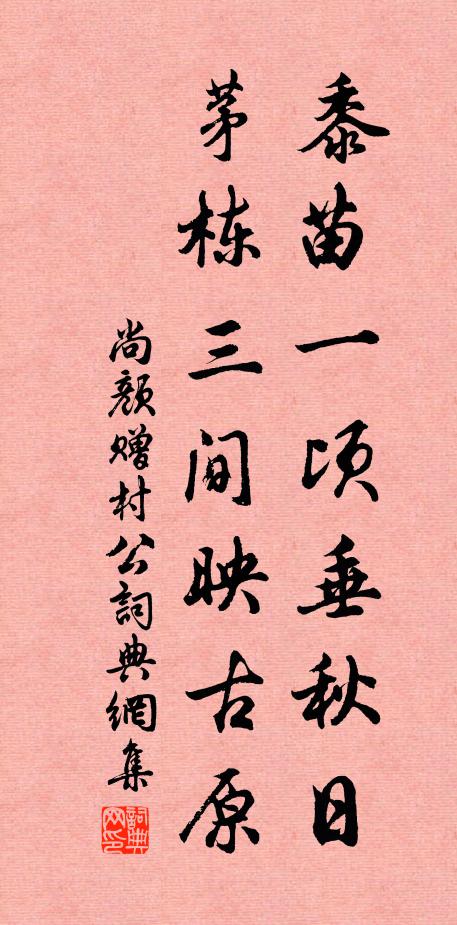 黍苗一顷垂秋日
茅栋三间映古原
尚颜赠村公詞典網集
詞典网印